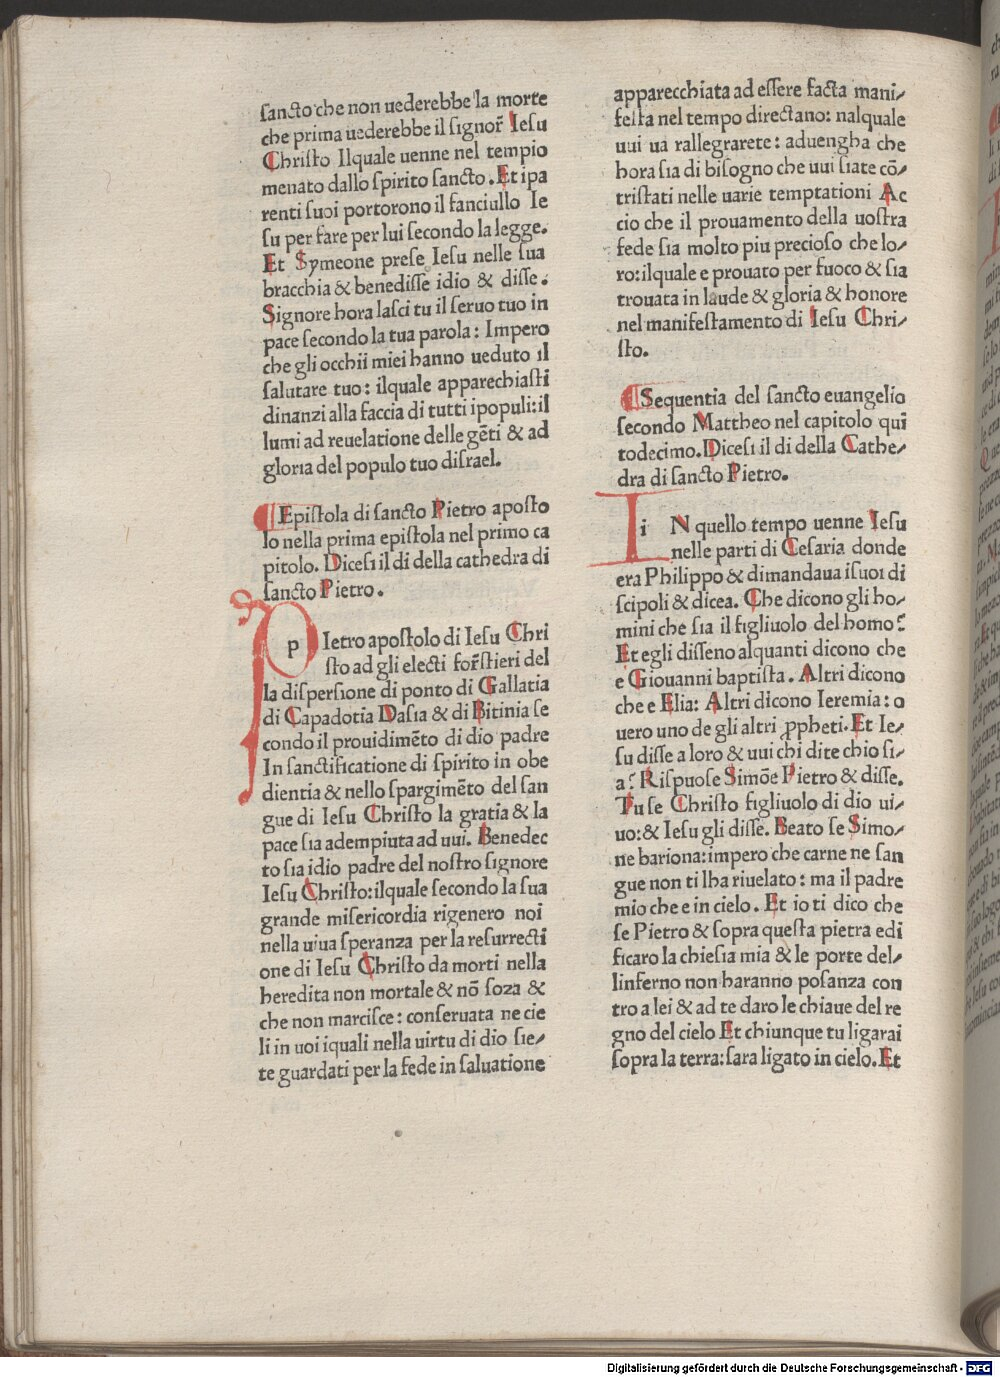 sancto che non uederebbe la morte
che prima uederebbe il signor̃ Iesu
Christo Ilquale uenne nel tempio
menato dallo spirito sancto. Et ipa
renti suoi portorono il fanciullo Ie
su per fare per lui secondo la legge.
Et Symeone prese Iesu nelle sua
bracchia & benedisse idio & disse:
Signore hora lasci tu il seruo tuo in
pace secondo la tua parola: Impero
che gli occhii miei hanno ueduto il
salutare tuo: ilquale apparechiasti
dinanzi alla faccia di tutti ipopuli: il
lumi ad reuelatione delle gẽti & ad
gloria del populo tuo disrael.
¶ Epistola di sancto Pietro aposto
lo nella prima epistola nel primo ca
pitolo. Dicesi il di della cathedra di
sancto Pietro.
p Ietro apostolo di Iesu Chri
sto ad gli electi for̃stieri del
la dispersione di ponto di Gallatia
di Capadotia Dasia & di Bitinia se
condo il prouidimẽto di dio padre
In sanctificatione di spirito in obe
dientia & nello spargimẽto del san
gue di Iesu Christo la gratia & la
pace sia adempiuta ad uui. Benedec
to sia idio padre del nostro signore
Iesu Christo: ilquale secondo la sua
grande misericordia rigenero noi
nella uiua speranza per la resurrecti
one di Iesu Christo da morti nella
heredita non mortale & nõ soza &
che non marcisce: conseruata ne cie
li in uoi iquali nella uirtu di dio sie/
te guardati per la fede in saluatione
apparecchiata ad essere facta mani/
festa nel tempo directano: nalquale
uui ua rallegrarete: aduengha che
hora sia di bisogno che uui siate cõ/
tristati nelle uarie temptationi Ac
cio che il prouamento della uostra
fede sia molto piu precioso che lo/
ro: ilquale e prouato per fuoco & sia
trouata in laude & gloria & honore
nel manifestamento di Iesu Chri/
sto.
¶ Sequentia del sancto euangelio
secondo Mattheo nel capitolo qui
todecimo. Dicesi il di della Cathe/
dra di sancto Pietro.
i N quello tempo uenne Iesu
nelle parti di Cesaria donde
era Philippo & dimandaua isuoi di
scipoli & dicea. Che dicono gli ho/
mini che sia il figliuolo del homo?
Et egli disseno alquanti dicono che
e Giouanni baptista. Altri dicono
che e Elia: Altri dicono Ieremia: o
uero uno de gli altri ꝓpheti. Et Ie/
su disse a loro & uui chi dite chio si/
a? Rispuose Simõe Pietro & disse.
Tu se Christo figliuolo di dio ui/
uo: & Iesu gli disse. Beato se Simo/
ne bariona: impero che carne ne san
gue non ti lha riuelato: ma il padre
mio che e in cielo. Et io ti dico che
se Pietro & sopra questa pietra edi
ficaro la chiesia mia & le porte del/
linferno non haranno posanza con
tro a lei & ad te daro le chiaue del re
gno del cielo Et chiunque tu ligarai
sopra la terra: sara ligato in cielo. Et
Digitalisierung gefördert durch die Deutsche Forschungsgemeinschaft - DFG